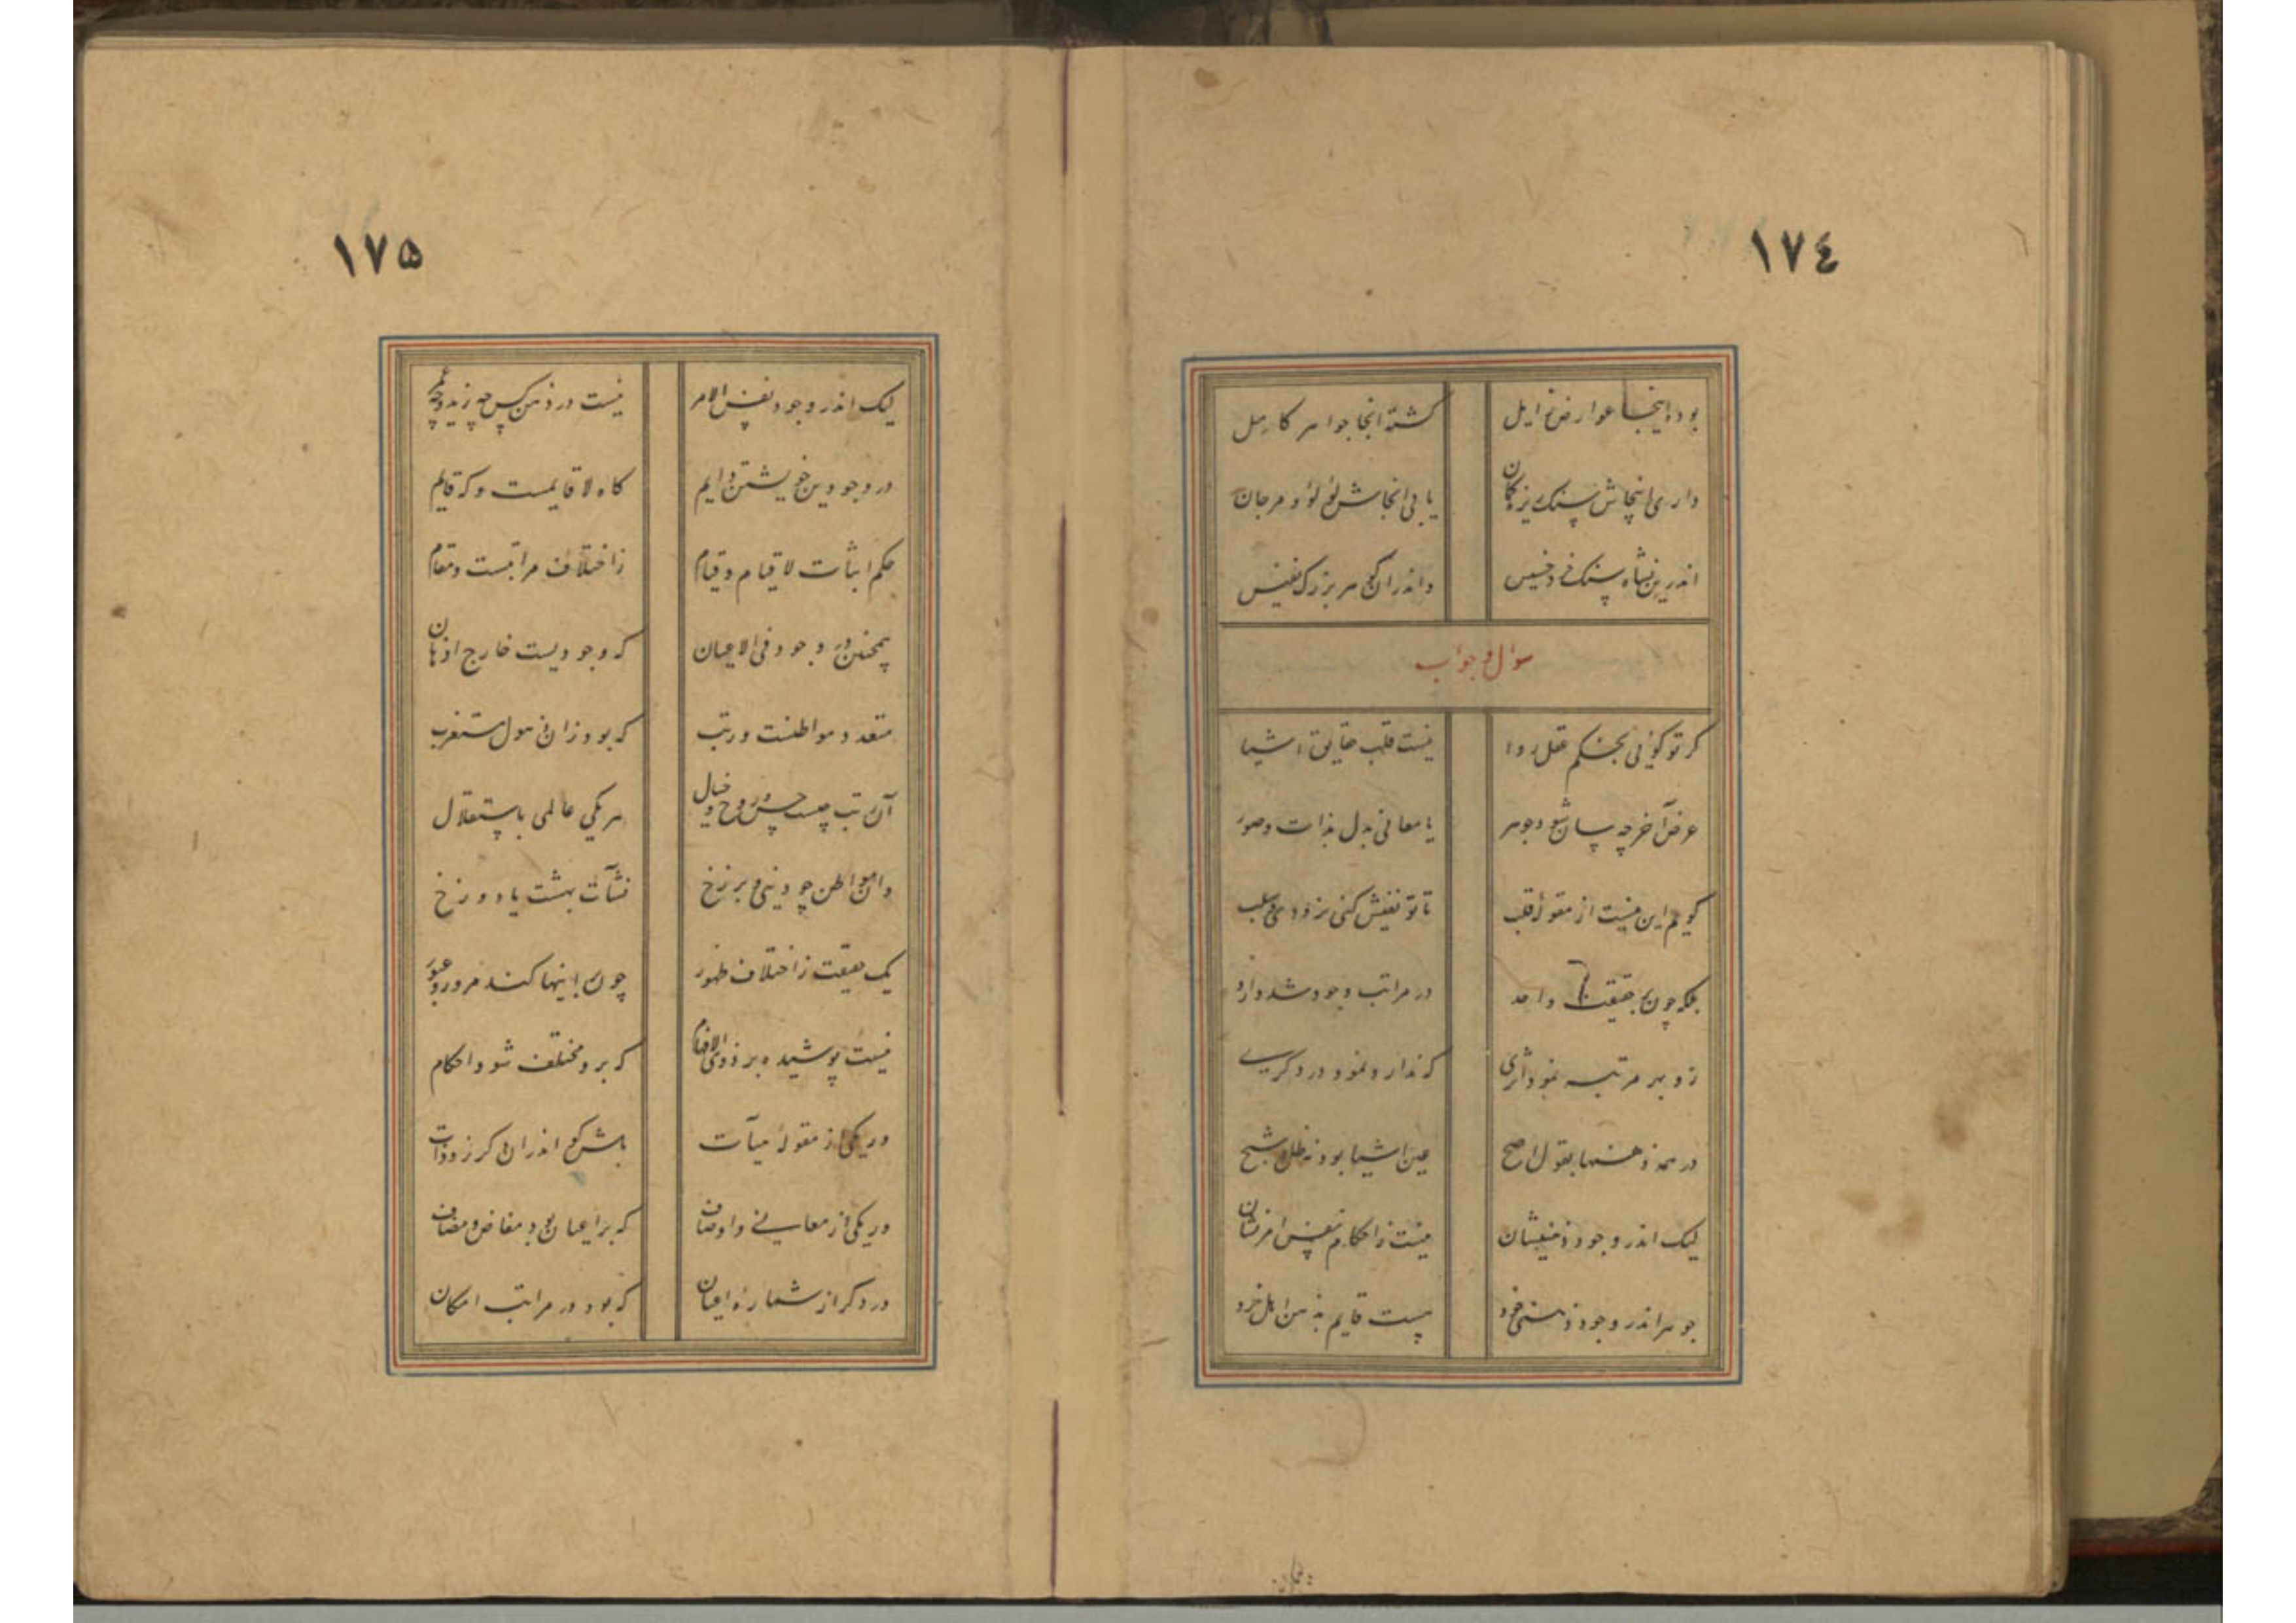 ١٧٤
بوده اینجا عوارض زایل گشته آنجا جواهر کامل
داری اینجاش سنک ریزه کمان یابی آنجاش لؤلؤ و مرجان
اندرین نشاه سنک خرد خسیس واندران گوهر بزرک نفیس
سؤال و جواب
کر تو کوئی بحکم عقل روا نیست قلب حقایق اشیا
عرض آخر چه سان شود جوهر یا معانی بدل بذات و صور
کویم این نیست از مقولهٔ قلب تا تو نفیش کنی ز زودی و سلب
بلکه چون حقیقت واحد در مراتب وجود شد وارد
زو بهر مرتبه نمود اثری که ندارد نمود در دکری
در همه ذهنها بقول اصح عین اشیا بود نه ظل و شبح
لیک اندر وجود ذهنیشان نیست ز احکام نفس امر نشان
جوهر اندر وجود ذهنی خود هست قایم بذهن اهل خرد
١٧٥
لیک اندر وجود نفس الامر نیست در ذهن کس چه زید و چه عمرو
در وجودین خویشتن دایم کاه لا قایمست و که قایم
حکم اثبات لا قیام و قیام ز اختلاف مراتبست و مقام
همچنین در وجود فی الاعیان که وجودیست خارج اذهان
متعدد مواطنست و رتب که بود زان ذهول مستغرب
آن رتب چیست حس و روح و خیال هر یکی عالمی باستقلال
وان مواطن چو دینی و برزخ نشآت بهشت یا دوزخ
یک حقیقت ز اختلاف ظهور چون باینها کند مرور و عبور
نیست پوشیده بر ذوی الافهام که برو مختلف شود احکام
در یکی از مقولهٔ هیآت باشد کو اندران دکر ز ذوات
در یکی از معانی و اوصاف که بر اعیان بود مفاض و مضاف
در دکر از شمارهٔ اعیان که بود در مراتب امکان